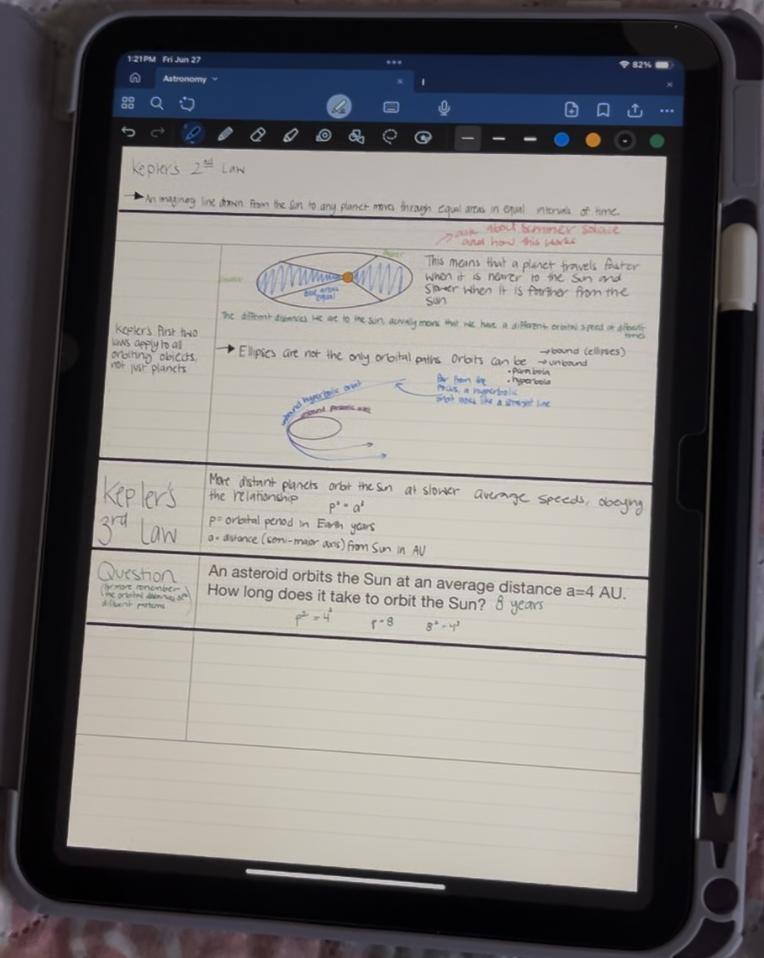 1:21PM Fri Jun 27
82%
Astronomy
Kepler's 2nd Law
→ An imaginary line drawn from the Sun to any planet moves through equal areas in equal intervals of time.
ask about summer
and how this works
This means that a planet travels faster
when it is nearer to the Sun and
slower when it is farther from the
sun
equal
The different distances we are to the sun, actually means that we have a different orbital speed at different
times
Kepler's first two
laws apply to all
orbiting objects,
not just planets
→ Ellipses are not the only orbital paths. Orbits can be
→ bound (ellipses)
→ unbound
• Parabola
• hyperbola
unbound hyperbolic orbit
far from the
focus, a hyperbolic
orbit looks like a straight line
Kepler's
3rd Law
More distant planets orbit the Sun at slower average speeds, obeying
the relationship
p² = a³
p = orbital period in Earth years
a = distance (semi-major axis) from Sun in AU
Question
(for more remember
the orbital distances of
different
An asteroid orbits the Sun at an average distance a=4 AU.
How long does it take to orbit the Sun? 8 years
p² = 4³
p = 8
8² = 4³